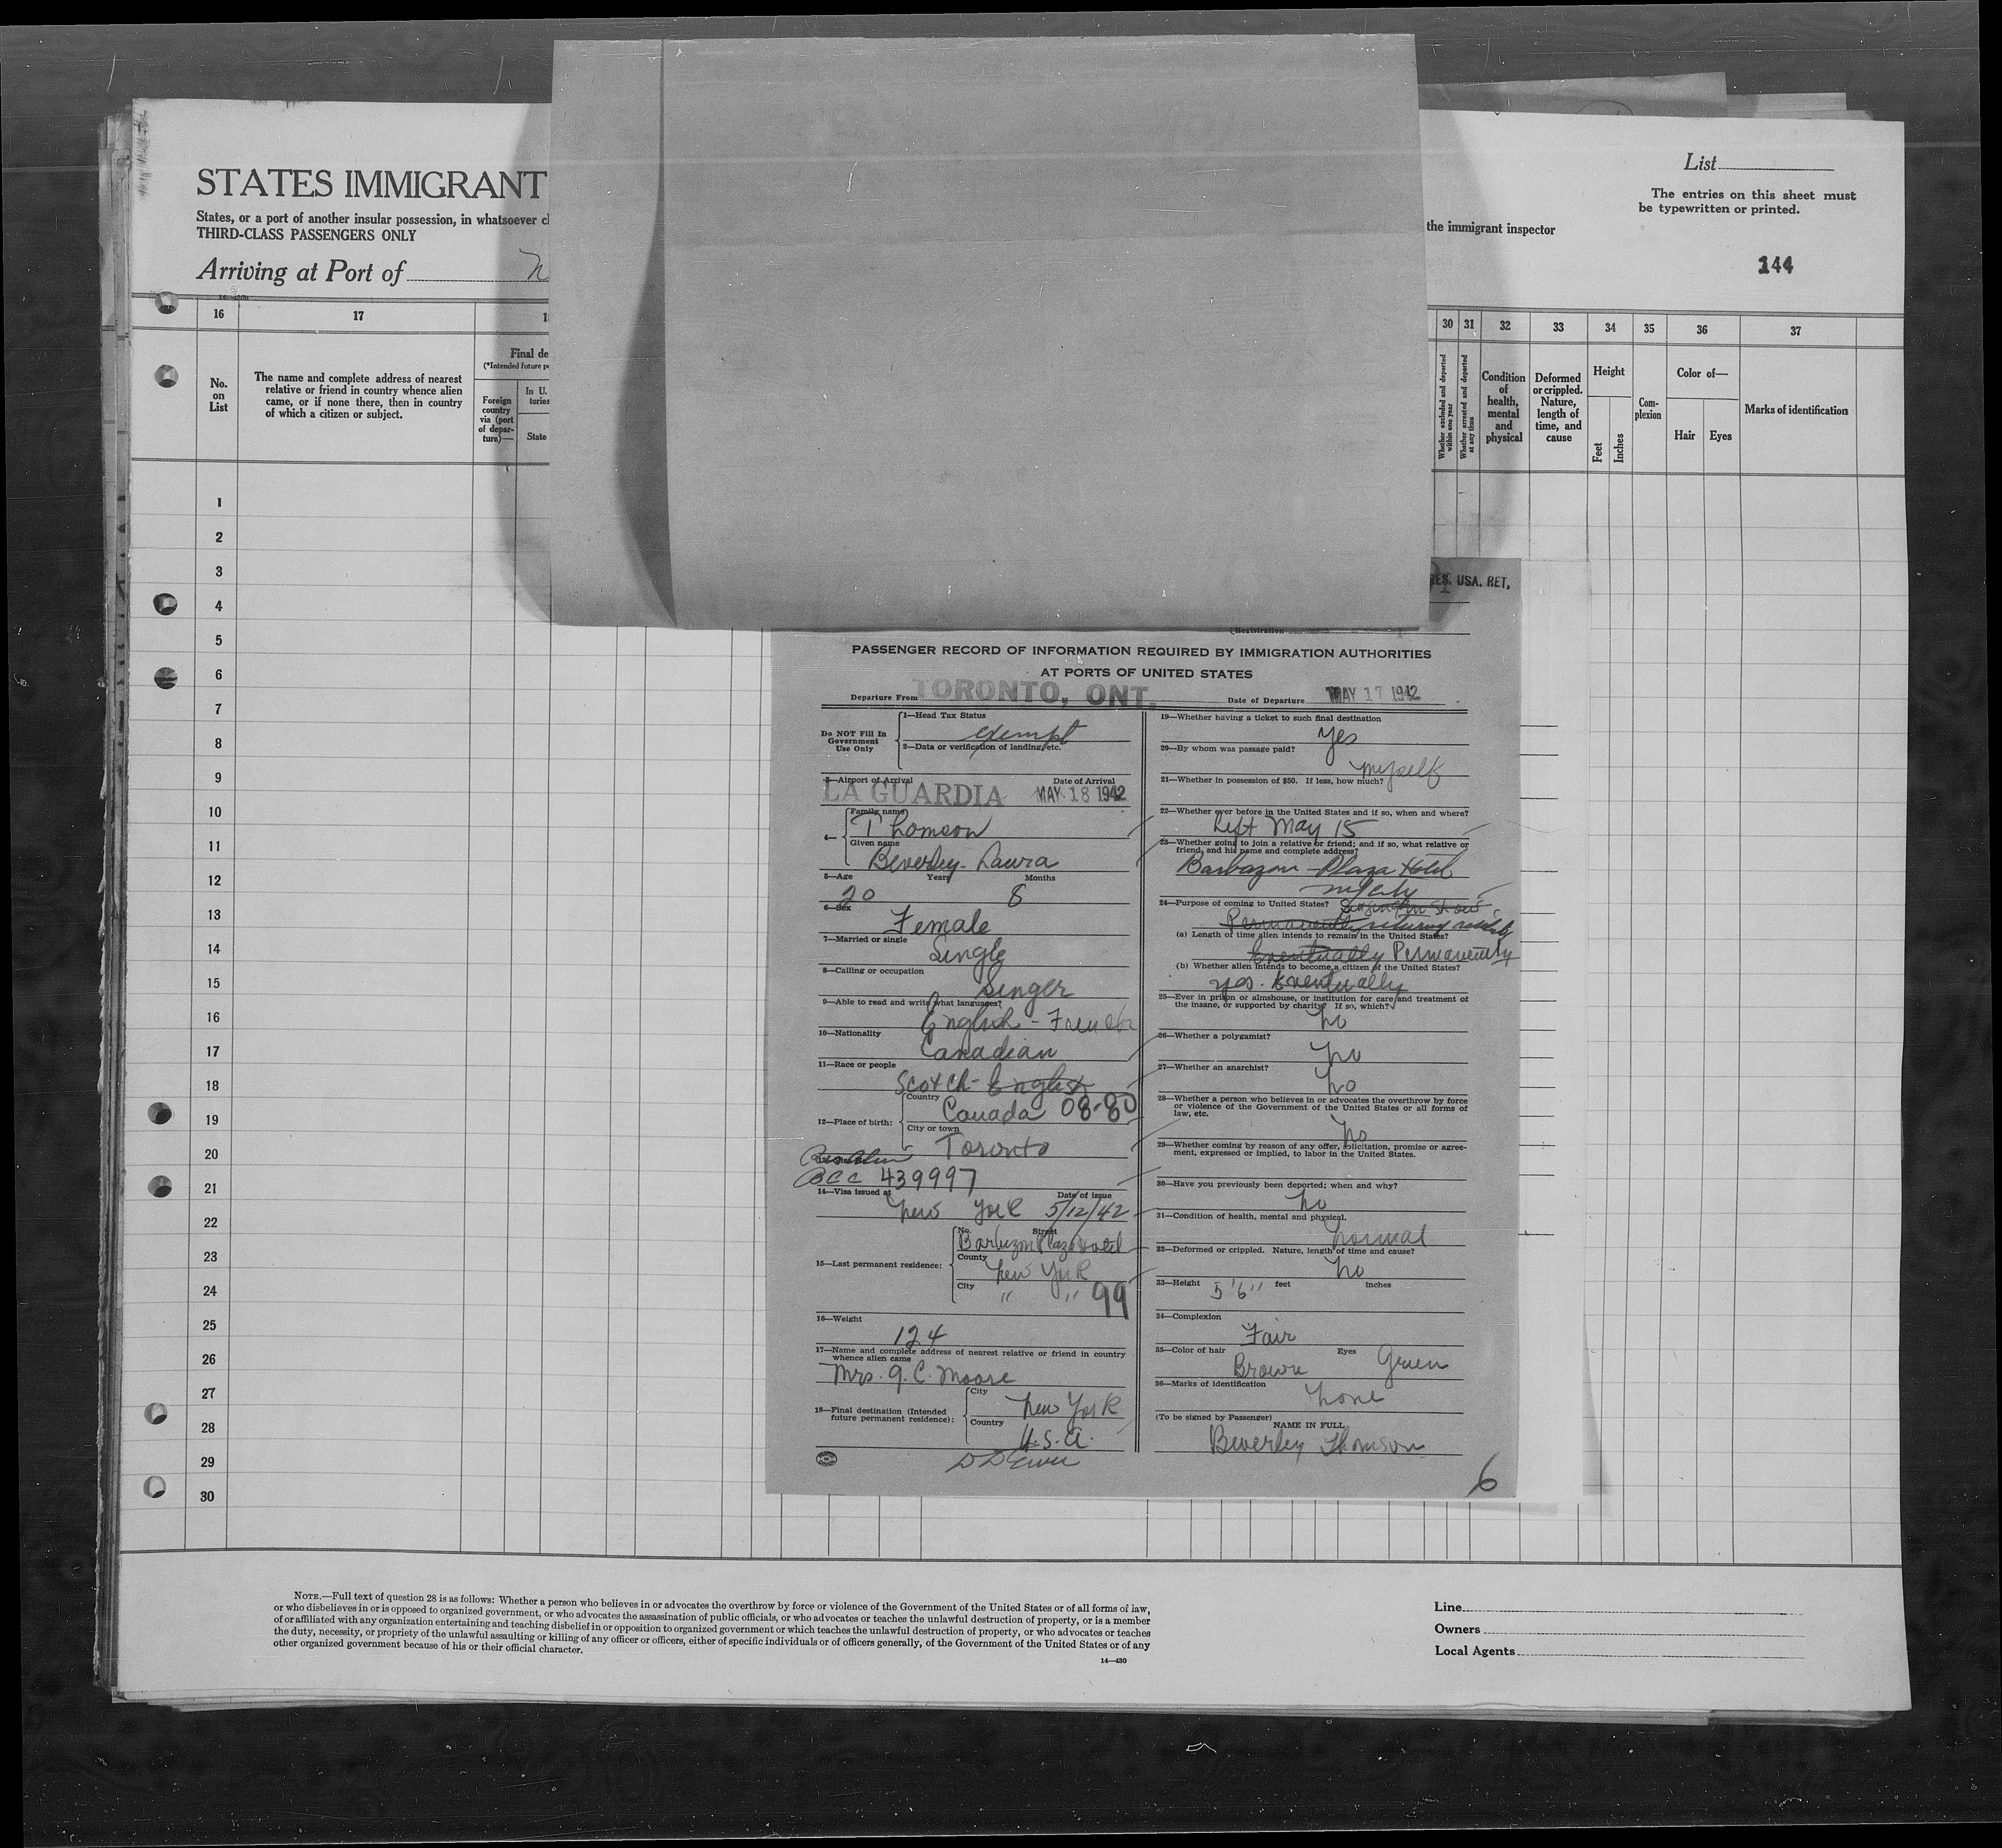 STATES IMMIGRANT
States, or a port of another insular possession, in whatsoever cl
THIRD-CLASS PASSENGERS ONLY
Arriving at Port of
List
The entries on this sheet must
be typewritten or printed.
the immigrant inspector
144
16 17 30 31 32 33 34 35 36 37
No.
on
List
The name and complete address of nearest
relative or friend in country whence alien
came, or if none there, then in country
of which a citizen or subject.
Final de
(*Intended future p
Foreign
country
via (port
of depar-
ture)—
In U.
tories
State
Whether excluded and deported
within one year
Whether arrested and deported
at any time
Condition
of
health,
mental
and
physical
Deformed
or crippled.
Nature,
length of
time, and
cause
Height
Feet
Inches
Com-
plexion
Color of—
Hair
Eyes
Marks of identification
1
2
3
4
5
6
7
8
9
10
11
12
13
14
15
16
17
18
19
20
21
22
23
24
25
26
27
28
29
30
RES. USA. RET,
(Registration
PASSENGER RECORD OF INFORMATION REQUIRED BY IMMIGRATION AUTHORITIES
AT PORTS OF UNITED STATES
Departure From TORONTO, ONT. Date of Departure MAY 17 1942
Do NOT Fill In
Government
Use Only
1—Head Tax Status
exempt
2—Data or verification of landing, etc.
3—Airport of Arrival Date of Arrival
LA GUARDIA MAY 18 1942
4— Family name
Thomson
Given name
Beverley-Laura
5—Age Years Months
20 8
6—Sex
Female
7—Married or single
Single
8—Calling or occupation
Singer
9—Able to read and write what languages?
English - French
10—Nationality
Canadian
11—Race or people
Scotch-English
12—Place of birth:
Country
Canada 08-80
City or town
Toronto
BCC 439997
14—Visa issued at Date of issue
New York 5/12/42
15—Last permanent residence:
No. Street
Barbizon Plaza Hotel
County
New York
City
" " 99
16—Weight
124
17—Name and complete address of nearest relative or friend in country
whence alien came
Mrs. G. C. Moore
18—Final destination (Intended
future permanent residence):
City
New York
Country
U.S.A.
19—Whether having a ticket to such final destination
Yes
20—By whom was passage paid?
myself
21—Whether in possession of $50. If less, how much?
22—Whether ever before in the United States and if so, when and where?
Left May 15
23—Whether going to join a relative or friend; and if so, what relative or
friend, and his name and complete address?
Barbazon-Plaza Hotel
24—Purpose of coming to United States?
Permanently returning
(a) Length of time alien intends to remain in the United States?
Eventually Permanently
(b) Whether alien intends to become a citizen of the United States?
yes. Eventually
25—Ever in prison or almshouse, or institution for care and treatment of
the insane, or supported by charity? If so, which?
No
26—Whether a polygamist?
No
27—Whether an anarchist?
No
28—Whether a person who believes in or advocates the overthrow by force
or violence of the Government of the United States or all forms of
law, etc.
No
29—Whether coming by reason of any offer, solicitation, promise or agree-
ment, expressed or implied, to labor in the United States.
30—Have you previously been deported; when and why?
No
31—Condition of health, mental and physical.
Normal
32—Deformed or crippled. Nature, length of time and cause?
No
33—Height 5'6" feet inches
34—Complexion
Fair
35—Color of hair Eyes
Brown Green
36—Marks of identification
None
(To be signed by Passenger)
NAME IN FULL
Beverley Thomson
6
NOTE.—Full text of question 28 is as follows: Whether a person who believes in or advocates the overthrow by force or violence of the Government of the United States or of all forms of law,
or who disbelieves in or is opposed to organized government, or who advocates the assassination of public officials, or who advocates or teaches the unlawful destruction of property, or is a member
of or affiliated with any organization entertaining and teaching disbelief in or opposition to organized government or which teaches the unlawful destruction of property, or who advocates or teaches
the duty, necessity, or propriety of the unlawful assaulting or killing of any officer or officers, either of specific individuals or of officers generally, of the Government of the United States or of any
other organized government because of his or their official character.
14—430
Line
Owners
Local Agents